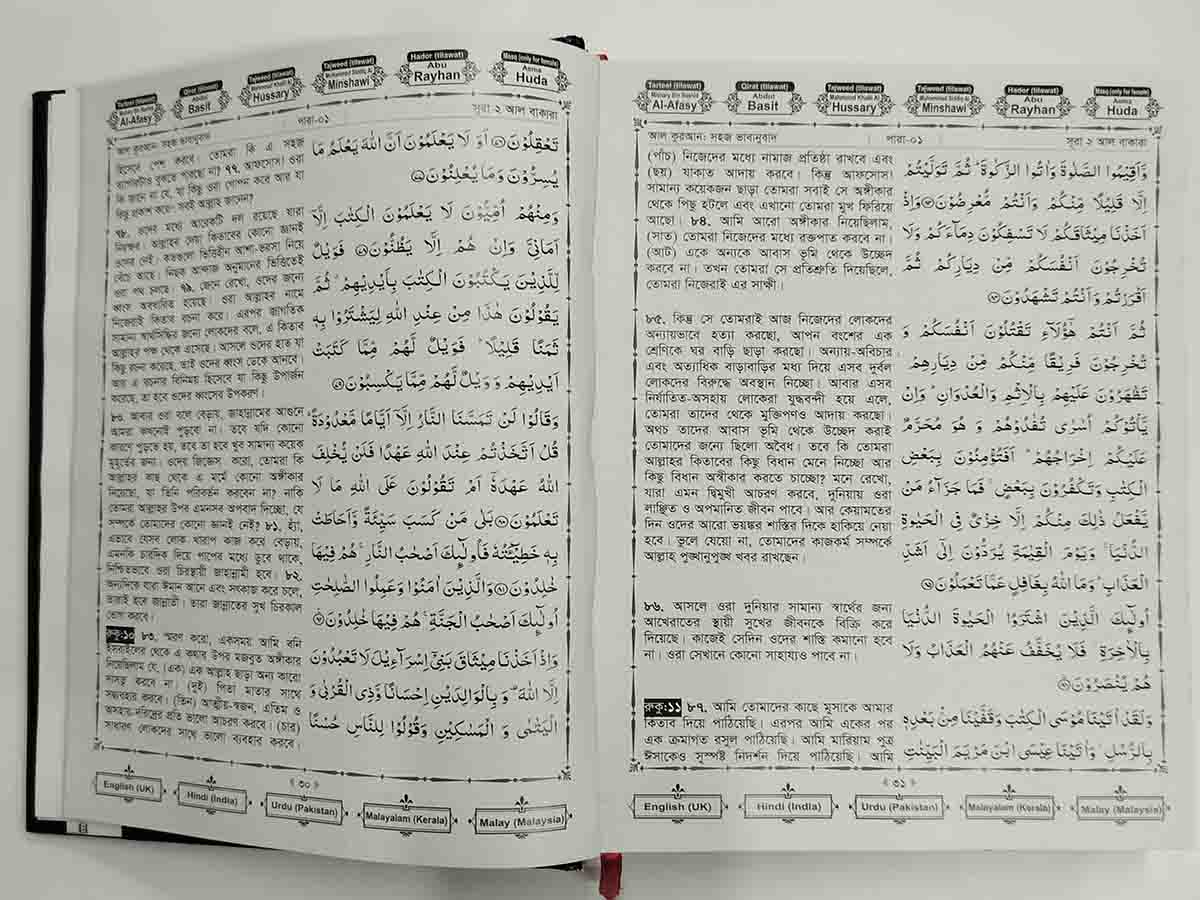 Tarteel (tilawat)
Mishary Bin Rashid
Al-Afasy
Qirat (tilawat)
Abdul
Basit
Tajweed (tilawat)
Mahmoud Khalil Al
Hussary
Tajweed (tilawat)
Muhammad Siddiq Al
Minshawi
Hador (tilawat)
Abu
Rayhan
Masq (only for female)
Asma
Huda
আল কুরআন: সহজ ভাবানুবাদ
পারা-০১
সূরা ২ আল বাকারা
হিসেবে পেশ করবে। তোমরা কি এ সহজ
ব্যাপারটাও বুঝতে পারছো না? ৭৭. আফসোস! ওরা
কি জানে না যে, যা কিছু ওরা গোপন করে আর যা
কিছু প্রকাশ করে সবই আল্লাহ জানেন?
৭৮. ওদের মধ্যে আরেকটি দল রয়েছে যারা
নিরক্ষর। আল্লাহর দেয়া কিতাবের কোনো জ্ঞানই
ওদের নেই। কতগুলো ভিত্তিহীন আশা-ভরসা নিয়ে
বেঁচে আছে। নিছক আন্দাজ অনুমানের ভিত্তিতেই
ওরা পথ চলছে। ৭৯. জেনে রেখো, ওদের জন্যে
ধ্বংস অবধারিত হয়েছে। ওরা আল্লাহর নামে
নিজেরাই কিতাব রচনা করে। এরপর জাগতিক
সামান্য স্বার্থসিদ্ধির জন্যে লোকদের বলে, এ কিতাব
আল্লাহর পক্ষ থেকে এসেছে। আসলে ওদের হাত যা
কিছু রচনা করেছে, তাই ওদের ধ্বংস ডেকে আনবে।
আর এ রচনার বিনিময় হিসেবে যা কিছু উপার্জন
করেছে, তা হবে ওদের ধ্বংসের উপকরণ।
৮০. আবার ওরা বলে বেড়ায়, জাহান্নামের আগুনে
আমরা কখনোই পুড়বো না। তবে যদি কোনো
কারণে পুড়তে হয়, তবে তা হবে খুব সামান্য কয়েক
মুহূর্তের জন্য। ওদের জিজ্ঞেস করো, তোমরা কি
আল্লাহর কাছ থেকে এ মর্মে কোনো অঙ্গীকার
নিয়েছো, যা তিনি পরিবর্তন করবেন না? নাকি
তোমরা আল্লাহর উপর এমনসব অপবাদ দিচ্ছো, যে
সম্পর্কে তোমাদের কোনো জ্ঞানই নেই? ৮১. হ্যাঁ,
এভাবে যেসব লোক খারাপ কাজ করে বেড়ায়,
এমনকি চারদিক দিয়ে পাপের মধ্যে ডুবে থাকে,
নিশ্চিতভাবে ওরা চিরস্থায়ী জাহান্নামী হবে। ৮২.
অন্যদিকে যারা ঈমান আনে এবং সৎকাজ করে চলে,
তারাই হবে জান্নাতী। তারা জান্নাতের সুখ চিরকাল
ভোগ করবে।
রুকু:১০ ৮৩. স্মরণ করো, একসময় আমি বনি
ইসরাইলের থেকে এ কথার উপর মজবুত অঙ্গীকার
নিয়েছিলাম যে, (এক) এক আল্লাহ ছাড়া অন্য কারো
দাসত্ব করবে না। (দুই) পিতা মাতার সাথে
সদ্ব্যবহার করবে। (তিন) আত্মীয়-স্বজন, এতিম ও
অসহায়-দরিদ্রের প্রতি ভালো আচরণ করবে। (চার)
সাধারণ লোকদের সাথে ভালো ব্যবহার করবে।
تَعْقِلُوْنَ ۝ اَوَ لَا يَعْلَمُوْنَ اَنَّ اللّٰهَ يَعْلَمُ مَا
يُسِرُّوْنَ وَمَا يُعْلِنُوْنَ ۝
وَمِنْهُمْ اُمِّيُّوْنَ لَا يَعْلَمُوْنَ الْكِتٰبَ اِلَّا
اَمَانِيَّ وَاِنْ هُمْ اِلَّا يَظُنُّوْنَ ۝ فَوَيْلٌ
لِّلَّذِيْنَ يَكْتُبُوْنَ الْكِتٰبَ بِاَيْدِيْهِمْ ۗ ثُمَّ
يَقُوْلُوْنَ هٰذَا مِنْ عِنْدِ اللّٰهِ لِيَشْتَرُوْا بِهٖ
ثَمَنًا قَلِيْلًا ۗ فَوَيْلٌ لَّهُمْ مِّمَّا كَتَبَتْ
اَيْدِيْهِمْ وَوَيْلٌ لَّهُمْ مِّمَّا يَكْسِبُوْنَ ۝
وَقَالُوْا لَنْ تَمَسَّنَا النَّارُ اِلَّآ اَيَّامًا مَّعْدُوْدَةً ۗ
قُلْ اَتَّخَذْتُمْ عِنْدَ اللّٰهِ عَهْدًا فَلَنْ يُّخْلِفَ
اللّٰهُ عَهْدَهٗٓ اَمْ تَقُوْلُوْنَ عَلَى اللّٰهِ مَا لَا
تَعْلَمُوْنَ ۝ بَلٰى مَنْ كَسَبَ سَيِّئَةً وَّاَحَاطَتْ
بِهٖ خَطِيْٓـَٔتُهٗ فَاُولٰٓئِكَ اَصْحٰبُ النَّارِ ۚ هُمْ فِيْهَا
خٰلِدُوْنَ ۝ وَالَّذِيْنَ اٰمَنُوْا وَعَمِلُوا الصّٰلِحٰتِ
اُولٰٓئِكَ اَصْحٰبُ الْجَنَّةِ ۚ هُمْ فِيْهَا خٰلِدُوْنَ ۝
وَاِذْ اَخَذْنَا مِيْثَاقَ بَنِيْٓ اِسْرَآءِيْلَ لَا تَعْبُدُوْنَ
اِلَّا اللّٰهَ ۗ وَبِالْوَالِدَيْنِ اِحْسَانًا وَّذِي الْقُرْبٰى وَ
الْيَتٰمٰى وَ الْمَسٰكِيْنِ وَقُوْلُوْا لِلنَّاسِ حُسْنًا
৩০
English (UK)
Hindi (India)
Urdu (Pakistan)
Malayalam (Kerala)
Malay (Malaysia)
Tarteel (tilawat)
Mishary Bin Rashid
Al-Afasy
Qirat (tilawat)
Abdul
Basit
Tajweed (tilawat)
Mahmoud Khalil Al
Hussary
Tajweed (tilawat)
Muhammad Siddiq Al
Minshawi
Hador (tilawat)
Abu
Rayhan
Masq (only for female)
Asma
Huda
আল কুরআন: সহজ ভাবানুবাদ
পারা-০১
সূরা ২ আল বাকারা
(পাঁচ) নিজেদের মধ্যে নামাজ প্রতিষ্ঠা রাখবে এবং
(ছয়) যাকাত আদায় করবে। কিন্তু আফসোস!
সামান্য কয়েকজন ছাড়া তোমরা সবাই সে অঙ্গীকার
থেকে পিছু হটলে এবং এখনো তোমরা মুখ ফিরিয়ে
আছো। ৮৪. আমি আরো অঙ্গীকার নিয়েছিলাম,
(সাত) তোমরা নিজেদের মধ্যে রক্তপাত করবে না।
(আট) একে অন্যকে আবাস ভূমি থেকে উচ্ছেদ
করবে না। তখন তোমরা সে প্রতিশ্রুতি দিয়েছিলে,
তোমরা নিজেরাই এর সাক্ষী।
৮৫. কিন্তু সে তোমরাই আজ নিজেদের লোকদের
অন্যায়ভাবে হত্যা করছো, আপন বংশের এক
শ্রেণিকে ঘর বাড়ি ছাড়া করছো। অন্যায়-অবিচার
এবং অত্যাধিক বাড়াবাড়ির মধ্য দিয়ে এসব দুর্বল
লোকদের বিরুদ্ধে অবস্থান নিচ্ছো। আবার এসব
নির্যাতিত-অসহায় লোকেরা যুদ্ধবন্দী হয়ে এলে,
তোমরা তাদের থেকে মুক্তিপণও আদায় করছো।
অথচ তাদের আবাস ভূমি থেকে উচ্ছেদ করাই
তোমাদের জন্যে ছিলো অবৈধ। তবে কি তোমরা
আল্লাহর কিতাবের কিছু বিধান মেনে নিচ্ছো আর
কিছু বিধান অস্বীকার করতে চাচ্ছো? মনে রেখো,
যারা এমন দ্বিমুখী আচরণ করবে, দুনিয়ায় ওরা
লাঞ্ছিত ও অপমানিত জীবন পাবে। আর কেয়ামতের
দিন ওদের আরো ভয়ঙ্কর শাস্তির দিকে হাকিয়ে নেয়া
হবে। ভুলে যেয়ো না, তোমাদের কাজকর্ম সম্পর্কে
আল্লাহ পুঙ্খানুপুঙ্খ খবর রাখছেন।
৮৬. আসলে ওরা দুনিয়ার সামান্য স্বার্থের জন্য
আখেরাতের স্থায়ী সুখের জীবনকে বিক্রি করে
দিয়েছে। কাজেই সেদিন ওদের শাস্তি কমানো হবে
না। ওরা সেখানে কোনো সাহায্যও পাবে না।
রুকু:১১ ৮৭. আমি তোমাদের কাছে মূসাকে আমার
কিতাব দিয়ে পাঠিয়েছি। এরপর আমি একের পর
এক ক্রমাগত রসুল পাঠিয়েছি। আমি মারিয়াম পুত্র
ঈসাকেও সুস্পষ্ট নিদর্শন দিয়ে পাঠিয়েছি। আমি
وَّاَقِيْمُوا الصَّلٰوةَ وَاٰتُوا الزَّكٰوةَ ۗ ثُمَّ تَوَلَّيْتُمْ
اِلَّا قَلِيْلًا مِّنْكُمْ وَاَنْتُمْ مُّعْرِضُوْنَ ۝ وَاِذْ
اَخَذْنَا مِيْثَاقَكُمْ لَا تَسْفِكُوْنَ دِمَآءَكُمْ وَلَا
تُخْرِجُوْنَ اَنْفُسَكُمْ مِّنْ دِيَارِكُمْ ثُمَّ
اَقْرَرْتُمْ وَاَنْتُمْ تَشْهَدُوْنَ ۝
ثُمَّ اَنْتُمْ هٰٓؤُلَآءِ تَقْتُلُوْنَ اَنْفُسَكُمْ وَ
تُخْرِجُوْنَ فَرِيْقًا مِّنْكُمْ مِّنْ دِيَارِهِمْ
تَظٰهَرُوْنَ عَلَيْهِمْ بِالْاِثْمِ وَالْعُدْوَانِ ۗ وَاِنْ
يَّأْتُوْكُمْ اُسٰرٰى تُفٰدُوْهُمْ وَ هُوَ مُحَرَّمٌ
عَلَيْكُمْ اِخْرَاجُهُمْ ۗ اَفَتُؤْمِنُوْنَ بِبَعْضِ
الْكِتٰبِ وَتَكْفُرُوْنَ بِبَعْضٍ ۚ فَمَا جَزَآءُ مَنْ
يَّفْعَلُ ذٰلِكَ مِنْكُمْ اِلَّا خِزْيٌ فِي الْحَيٰوةِ
الدُّنْيَا ۚ وَيَوْمَ الْقِيٰمَةِ يُرَدُّوْنَ اِلٰٓى اَشَدِّ
الْعَذَابِ ۗ وَمَا اللّٰهُ بِغَافِلٍ عَمَّا تَعْمَلُوْنَ ۝
اُولٰٓئِكَ الَّذِيْنَ اشْتَرَوُا الْحَيٰوةَ الدُّنْيَا
بِالْاٰخِرَةِ ۖ فَلَا يُخَفَّفُ عَنْهُمُ الْعَذَابُ وَلَا
هُمْ يُنْصَرُوْنَ ۝
وَلَقَدْ اٰتَيْنَا مُوْسَى الْكِتٰبَ وَقَفَّيْنَا مِنْۢ بَعْدِهٖ
بِالرُّسُلِ ۖ وَاٰتَيْنَا عِيْسَى ابْنَ مَرْيَمَ الْبَيِّنٰتِ
৩১
English (UK)
Hindi (India)
Urdu (Pakistan)
Malayalam (Kerala)
Malay (Malaysia)